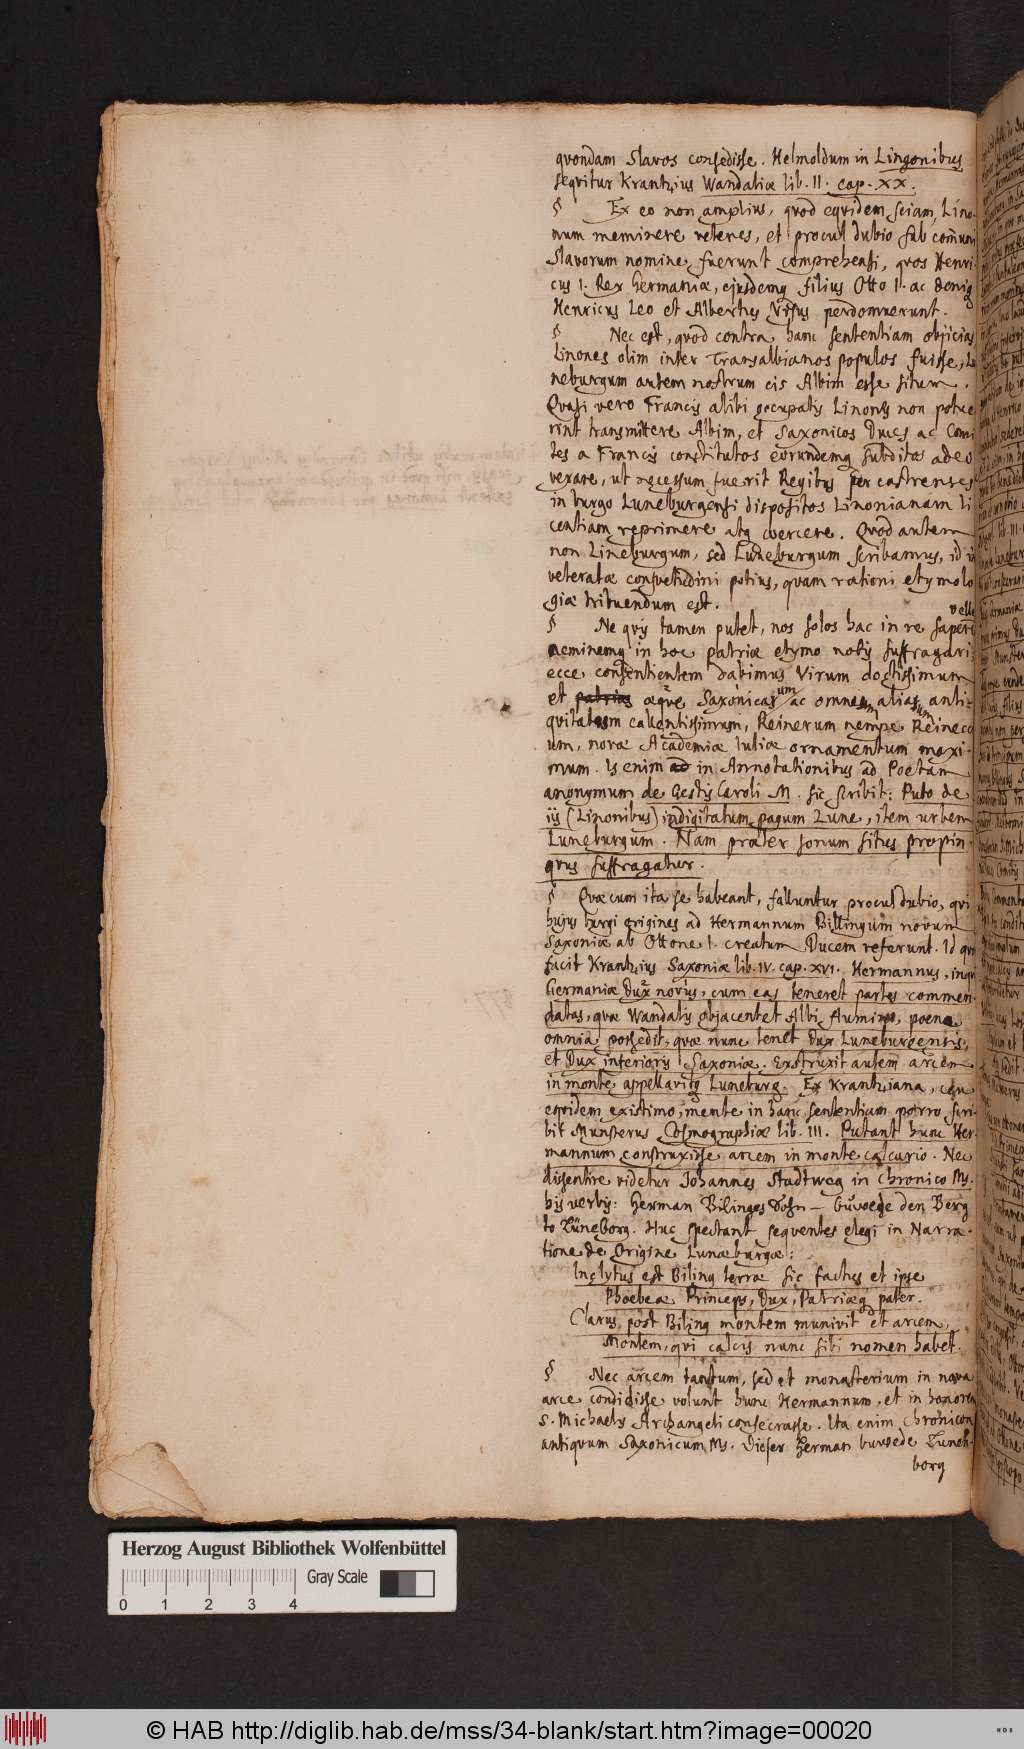 qvondam Slavos consedisse. Helmoldum in Lingonibus
seqvitur Krantzius Wandaliæ lib. II. cap. XX.
§ Ex eo non amplius, qvod eqvidem sciam, Lino-
num meminere veteres, et procul dubio sub com̄uni
Slavorum nomine fuerunt comprehensi, qvos Henri-
cus I. Rex Germaniæ, ejusdemq filius Otto I. ac deniq
Henricus Leo et Albertus Ursus perdomuerunt.
§ Nec est, qvod contra hanc sententiam objicias
Linones olim inter Transalbianos populos fuisse, Lu
neburgum autem nostrum cis Albim esse situm.
Qvasi vero Francis alibi occupatis Linones non potue
rint transmittere Albim, et Saxonicos Duces ac Comi
tes a Francis constitutos eorundemq subditos adeo
vexare, ut necessum fuerit Regibus per castrenses
in burgo Luneburgensi dispositos Linonianam li
centiam reprimere atq coercere. Qvod autem
non Lineburgum, sed Luneburgum scribamus, id in
veteratæ consvetudini potius, qvam rationi etymolo
giæ tribuendum est.
velle
§ Ne qvis tamen putet, nos solos hac in re sapere
neminemq in hoc patriæ etymo nobis suffragari,
ecce consentientem dabimus Virum doctissimum
et patrias æqve Saxonicarum ac omnium aliarum anti-
qvitatum callentissimum, Reinerum nempe Reinecci
um, novæ Academiæ Juliæ ornamentum maxi-
mum. Is enim ad in Annotationibus ad Poetam
anonymum de Gestis Caroli M. sic scribit: Puto de
iis (Linonibus) indigitatum pagum Lune, item urbem
Luneburgum. Nam præter sonum situs propin-
qvus suffragatur.
§ Qvæ cum ita se habeant, falluntur procul dubio, qvi
hujus burgi origines ad Hermannum Billingum novum
Saxoniæ ab Ottone I. creatum Ducem referunt. Id qvod
facit Krantzius Saxoniæ lib. IV. cap. XVI. Hermannus, inqvit
Germaniæ Dux novus, cum eas teneret partes commen-
datas, qvæ Wandalis objacent et Albi flumini, poene
omnia possedit, qvæ nunc tenet Dux Luneburgensis,
et Dux inferioris Saxoniæ. Exstruxit autem arcem
in monte appellavitq Luneburg. Ex Krantziana, qvan
eqvidem existimo, mente in hanc sententiam porro scri-
bit Munsterus Cosmographiæ lib. III. Putant hunc Her-
mannum construxisse arcem in monte calcario. Nec
dissentire videtur Johannes Stadtweg in Chronico Ms.
his verbis: Herman Bilinges Sohn — buwede den Berg
to Lüneborg. Huc spectant seqventes elegi in Narra-
tione de Origine Lunæburgæ:
Inclytus est Biling terræ sic factus et ipse
Phoebeæ Princeps, Dux, Patriæq pater.
Clarus post Biling montem munivit et arcem,
Montem, qvi calcis nunc sibi nomen habet.
§ Nec arcem tantum, sed et monasterium in nova
arce condidisse volunt hunc Hermannum, et in honorem
S. Michaelis Archangeli consecrasse. Ita enim Chronicon
antiqvum Saxonicum Ms. Dieser Herman buwede Lüneb-
borg
Herzog August Bibliothek Wolfenbüttel
Gray Scale
0 1 2 3 4
© HAB http://diglib.hab.de/mss/34-blank/start.htm?image=00020